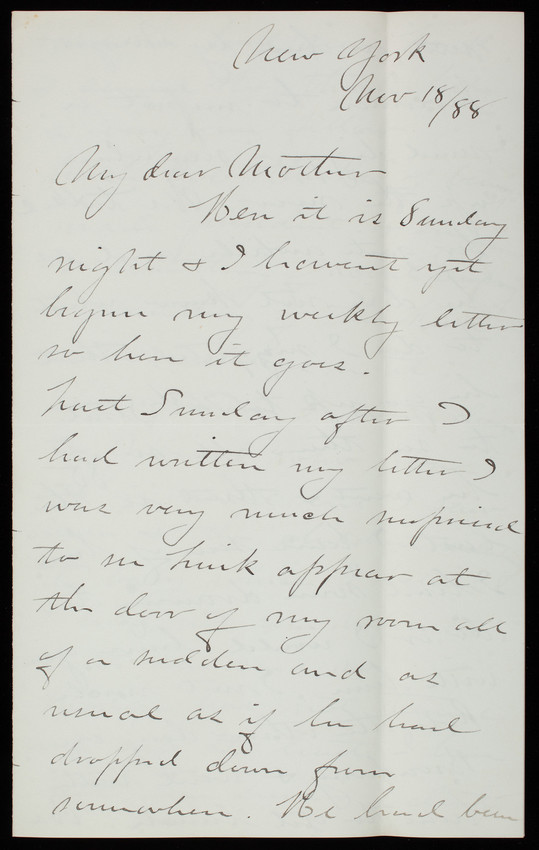 New York
Nov 18/88
My dear Mother
Here it is Sunday
night & I havent yet
begun my weekly letter
so here it goes.
Last Sunday after I
had written my letter I
was very much surprised
to see Link appear at
the door of my room all
of a sudden and as
usual as if he had
dropped down from
somewhere. He had been